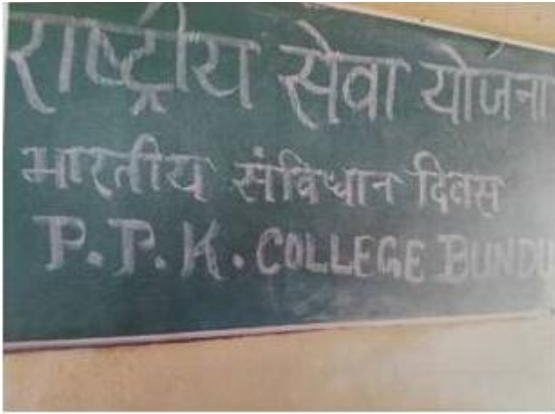 राष्ट्रीय सेवा योजना
भारतीय संविधान दिवस
P.P.K. COLLEGE BUNDU